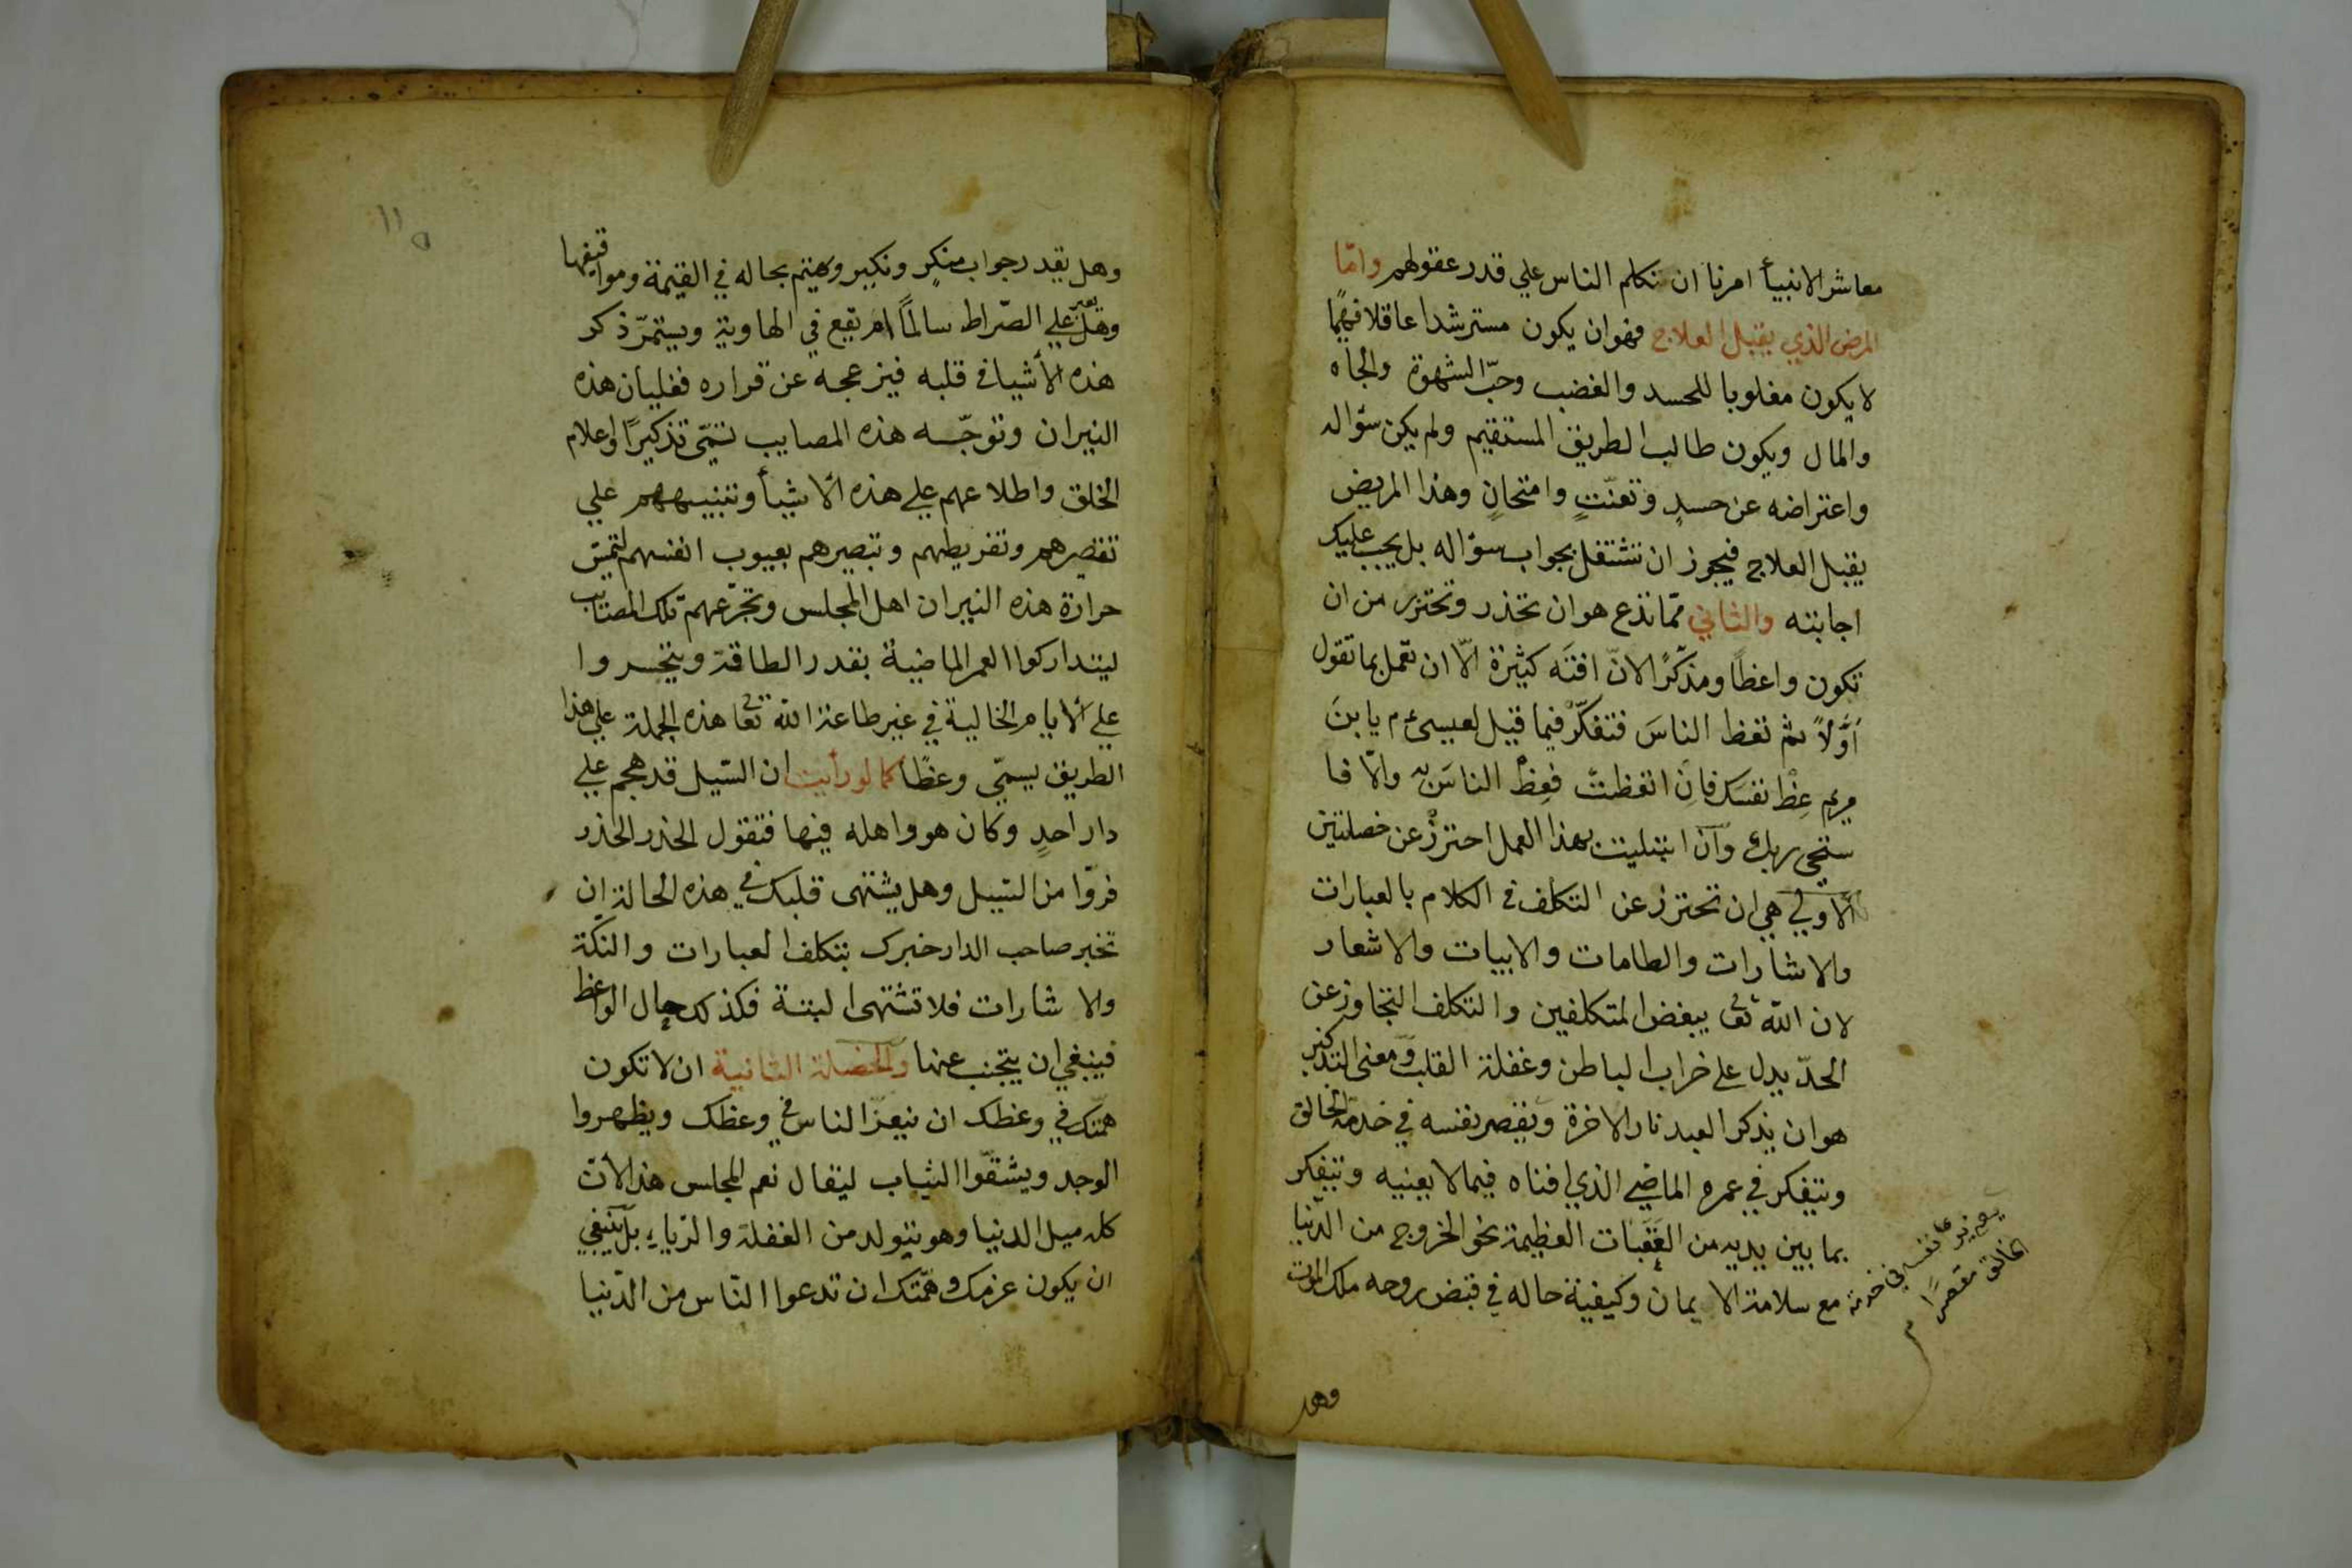 معاشر الانبيأ امرنا ان نكلم الناس علي قدر عقولهم وامّا
المرض الذي يقبل العلاج فهو ان يكون مسترشدا عاقلا فهيمًا
لا يكون مغلوبا للحسد والغضب وحبّ الشهوة والجاه
والمال ويكون طالب الطريق المستقيم ولم يكن سؤاله
واعتراضه عن حسدٍ وتعنّتٍ وامتحانٍ وهذا المريض
يقبل العلاج فيجوز ان تشتغل بجواب سؤاله بل يجب عليك
اجابته والثاني ممّا تدع هو ان تحذر وتحترز من ان
تكون واعظًا ومذكّرًا لانّ افته كثيرة الّا ان تعمل بما تقول
اوّلًا ثم تعظ الناسَ فتفكّر فيما قيل لعيسى ءم يا بنَ
مريم عِظْ نفسَك فانِ اتعظتَ فعِظْ الناسَ والّا فا
ستحي ربك وان ابتليت بهذا العمل احترزْ عن خصلتين
الأولي هي ان تحترز عن التكلف في الكلام بالعبارات
والاشارات والطامات والابيات والاشعار
لان اللّه تعا يبغض المتكلفين والتكلف التجاوز عن
الحدّ يدل علي خراب الباطن وغفلة القلب ومعنى التذكير
هو ان يذكر العبد نار الاخرة ويقصر نفسه في خدمة الخالق
ويتفكر في عمره الماضي الذي افناه فيما لا يعنيه ويتفكر
بما بين يديه من العَقَبات العظيمة نحو الخروج من الدّنيا
مع سلامة الايمان وكيفية حاله في قبض روحه ملك الموت
نفسه في خدمة
الخالق مقصرًا
وهل
وهل يقدر جواب منكرٍ ونكير ويهتم بحاله في القيمة ومواقيفها
وهل يعبر علي الصّراط سالمًا ام يقع في الهاوية ويستمرّ ذكر
هذه الأشيا في قلبه فيزعجه عن قراره فغليان هذه
النيران وتوجّه هذه المصايب تسمّى تذكيرًا واعلام
الخلق واطلاعهم علي هذه الأشيأ وتنبيههم علي
تقصيرهم وتفريطهم وتبصيرهم بعيوب انفسهم لتمسّ
حرارة هذه النيران اهل المجلس وتجزعهم تلك المصائب
ليتداركوا العمر الماضية بقدر الطاقة ويتحسروا
علي الأيام الخالية في غير طاعة اللّه تعا هذه الجملة علي هذا
الطريق يسمّي وعظًا كما لو رأيت ان السّيل قد هجم علي
دار احدٍ وكان هو واهله فيها فتقول الحذر الحذر
فرّوا من السّيل وهل يشتهى قلبك في هذه الحالة ان
تخبر صاحب الدار خبرك بتكلف العبارات والنكة
والاشارات فلا تشتهى البتة فكذلك حال الواعظ
فينبغي ان يتجنب عنها والخصلة الثانية ان لا تكون
همّتك في وعظك ان ينعرّ الناس في وعظك ويظهروا
الوجد ويشقّوا الثياب ليقال نعم المجلس هذا لأنّ
كله ميل الدنيا وهو يتولد من الغفلة والرّياء بل ينبغي
ان يكون عزمك وهمّتك ان تدعوا النّاس من الدّنيا